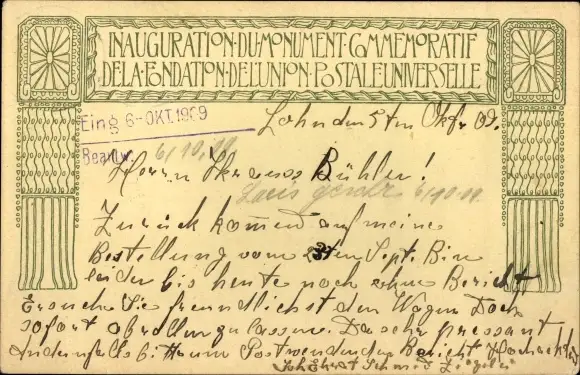 INAUGURATION·DU·MONUMENT·COMMEMORATIF
DE·LA·FONDATION·DE·L'UNION·POSTALE·UNIVERSELLE
Eing 6-OKT.1909
Beantw.
den 5ten Okt 09.
Herrn Bühler!
Zurück komend auf meine
Bestellung vom Sept. Bin
leider bis heute noch ohne Bericht
Ersuche Sie freundlichst den Wagen Doch
sofort abrollen zu lassen. Da sehr pressant!
Andernfalls bitte um Postwendenden Bericht
Schmid